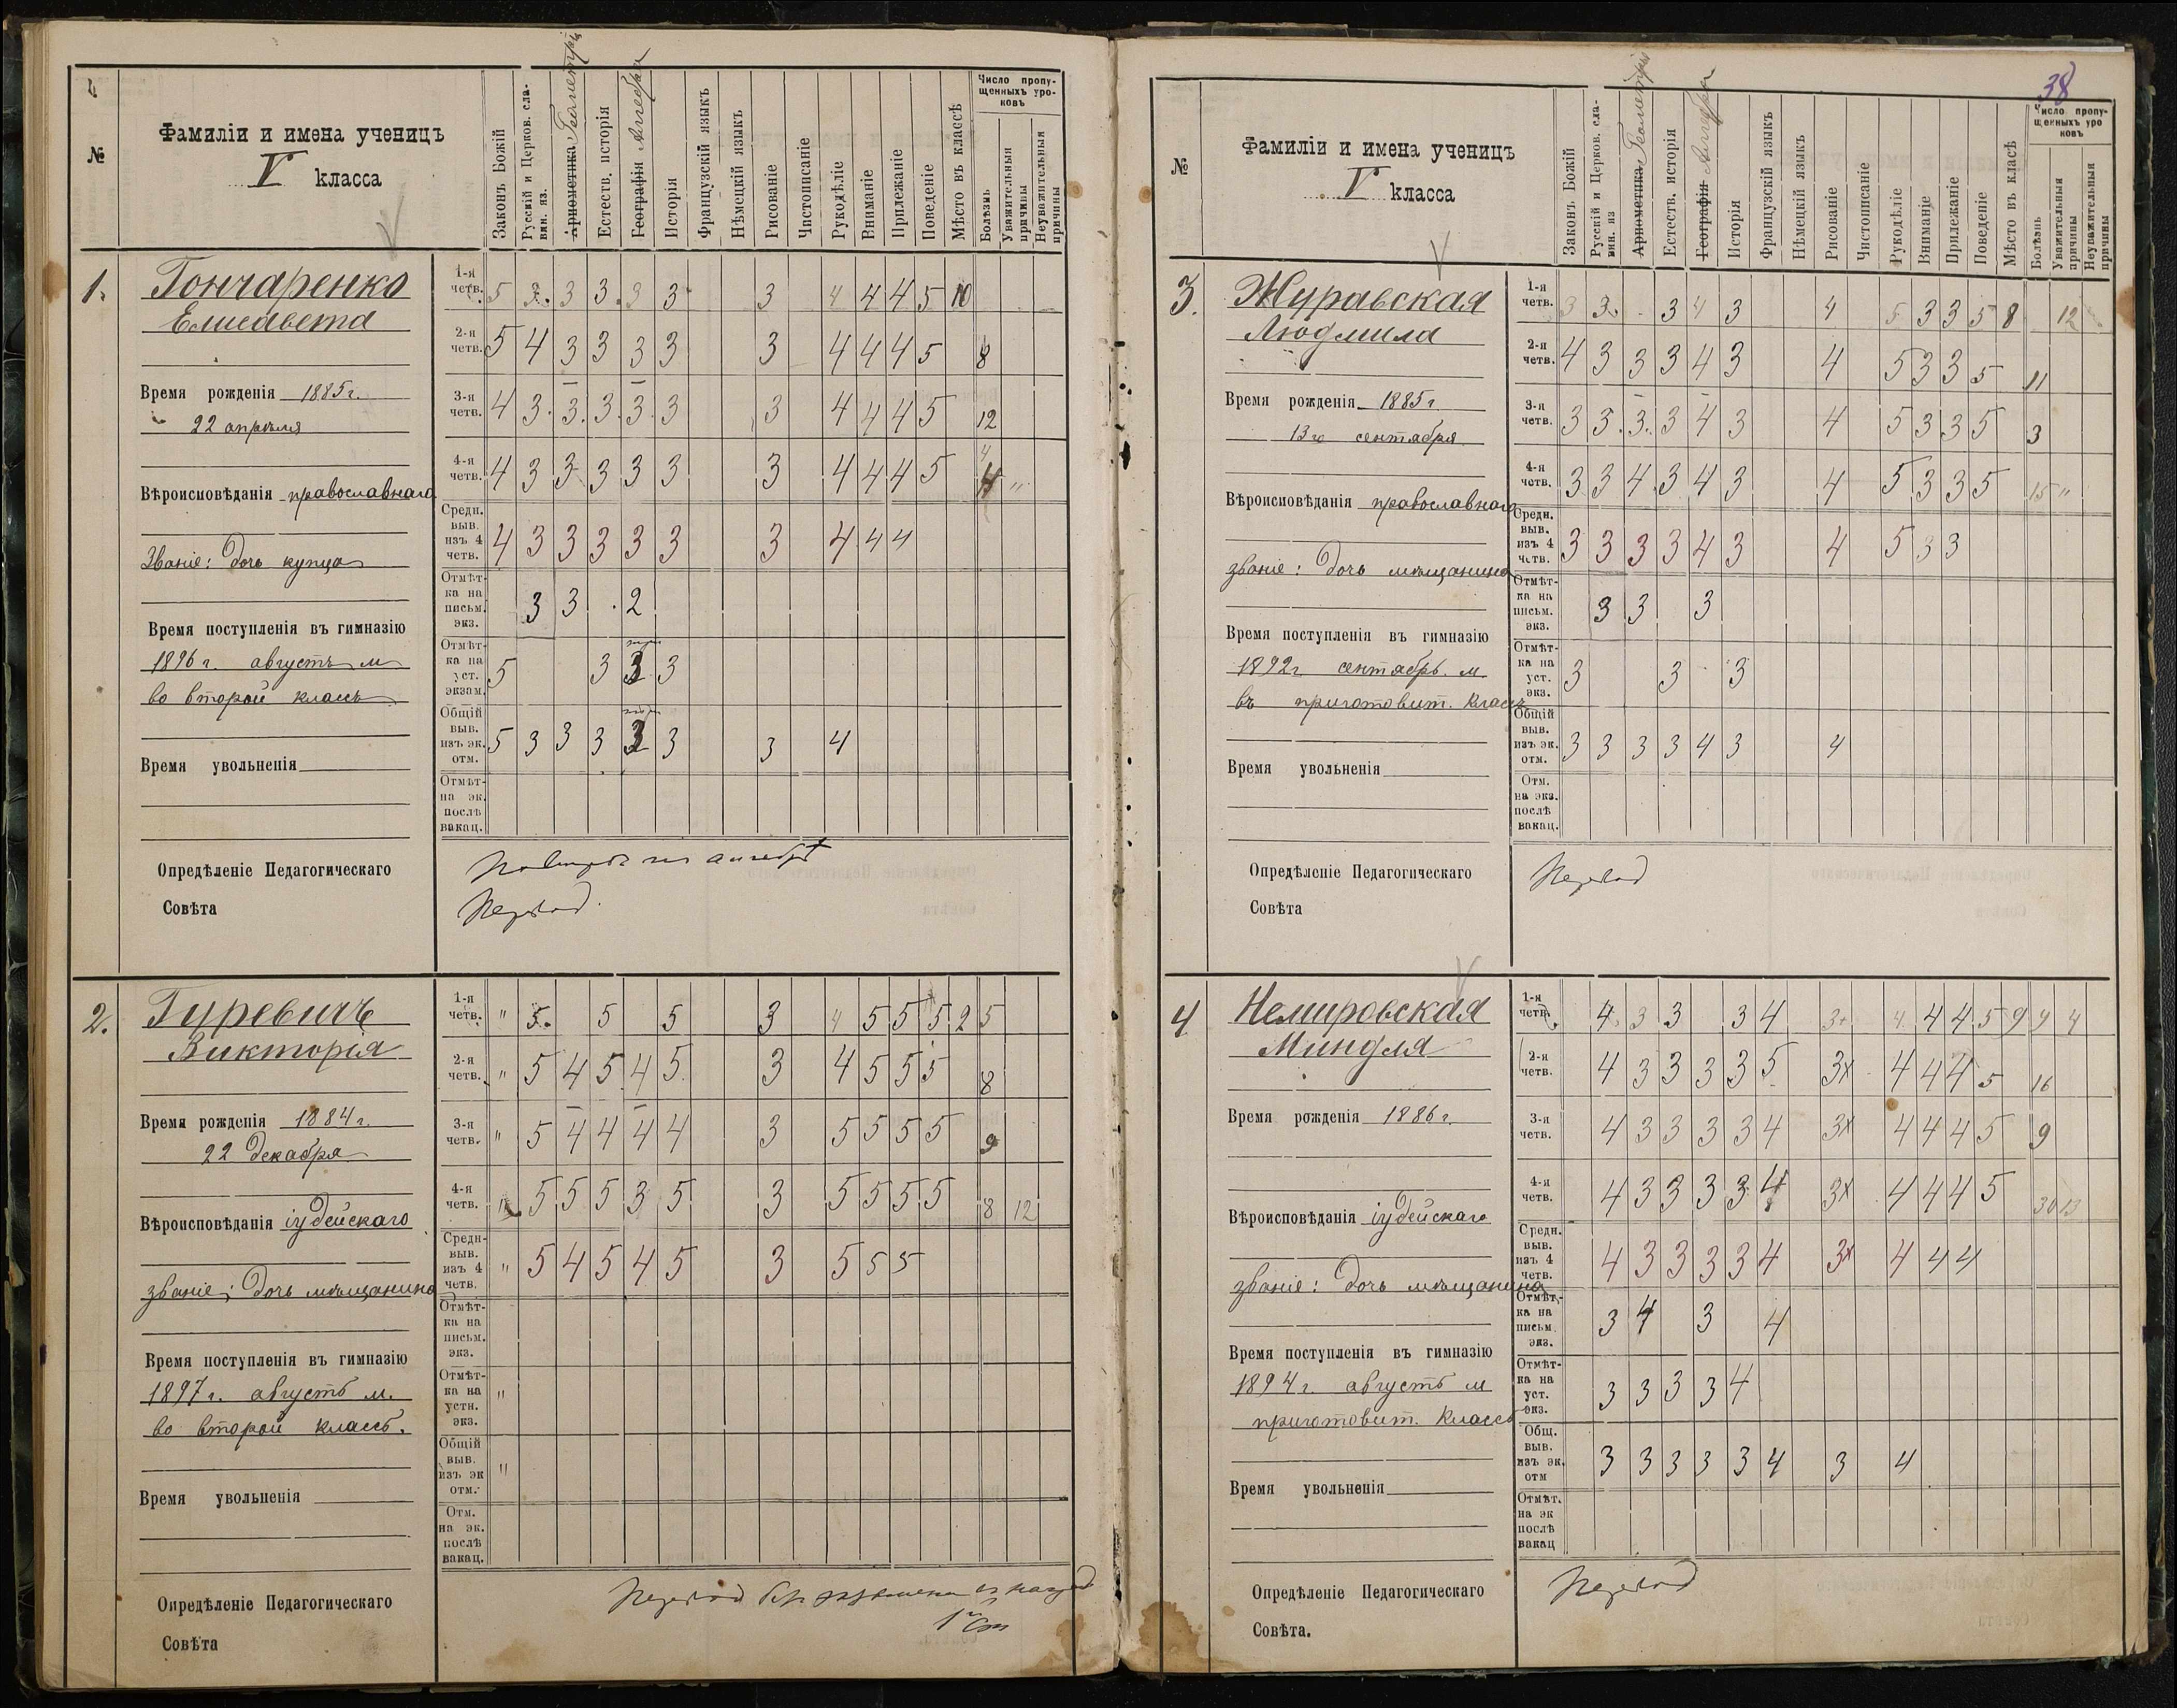 №
Фамиліи и имена ученицъ
V класса
Законъ Божій
Русскій и Церков. сла-
вян. яз.
Ариѳметика Геометрія
Естеств. исторія
Географія Алгебра
Исторія
Французскій языкъ
Нѣмецкій языкъ
Рисованіе
Чистописаніе
Рукодѣліе
Вниманіе
Прилежаніе
Поведеніе
Мѣсто въ классѣ
Число пропу-
щенныхъ уро-
ковъ
Болѣзнь
Уважительныя
причины
Неуважительныя
причины
1.
Гончаренко
Елисавета
Время рожденія 1885 г.
22 апрѣля
Вѣроисповѣданія православнаго
Званіе: дочь купца
Время поступленія въ гимназію
1896 г. августъ м
во второй классъ
Время увольненія
1-я четв. 5 3. 3 3. 3 3 3 4 4 4 5 10
2-я четв. 5 4 3 3 3 3 3 4 4 4 5 8
3-я четв. 4 3. 3. 3. 3. 3 3 4 4 4 5 12
4-я четв. 4 3 3 3 3 3 3 4 4 4 5 4 "
Средн. выв. изъ 4 четв. 4 3 3 3 3 3 3 4 4 4
Отмѣт-ка на письм. экз. 3 3 2
Отмѣт-ка на уст. экзам. 5 3 3 3
Общій выв. изъ эк. отм. 5 3 3 3 3 3 3 4
Отмѣт- на эк. послѣ вакац.
Опредѣленіе Педагогическаго
Совѣта
по алгебрѣ
Перевод.
2.
Гуревичъ
Викторія
Время рожденія 1884 г.
22 декабря
Вѣроисповѣданія іудейскаго
званіе: дочь мѣщанина
Время поступленія въ гимназію
1897 г. августъ м.
во второй классъ.
Время увольненія
1-я четв. " 5. 5 5 3 4 5 5 5 2 5
2-я четв. " 5 4 5 4 5 3 4 5 5 5 8
3-я четв. " 5 4 4 4 4 3 5 5 5 5 9
4-я четв. " 5 5 5 3 5 3 5 5 5 5 8 12
Средн- выв. изъ 4 четв. " 5 4 5 4 5 3 5 5 5
Отмѣт-ка на письм. экз.
Отмѣт-ка на устн. экз. "
Общій выв. изъ эк отм. "
Отм. на эк. послѣ вакац.
Опредѣленіе Педагогическаго
Совѣта
Перевод без экзамена съ наград
1й ст
38
№
Фамиліи и имена ученицъ
V класса
Законъ Божій
Русскій и Церков. сла-
вян. яз
Ариѳметика Геометрія
Естеств. исторія
Географія Алгебра
Исторія
Французскій языкъ
Нѣмецкій языкъ
Рисованіе
Чистописаніе
Рукодѣліе
Вниманіе
Прилежаніе
Поведеніе
Мѣсто въ класѣ
Число пропу-
щенныхъ уро
ковъ
Болѣзнь
Уважительныя
причины
Неуважительныя
причины
3.
Журавская
Людмила
Время рожденія 1885 г.
13го сентября
Вѣроисповѣданія православнаго
званіе: дочь мѣщанина
Время поступленія въ гимназію
1892 г. сентябрь. м.
въ приготовит. классъ
Время увольненія
1-я четв. 3 3. 3 4 3 4 5 3 3 5 8 12
2-я четв. 4 3 3 3 4 3 4 5 3 3 5 11
3-я четв. 3 3. 3. 3 4 3 4 5 3 3 5 3
4-я четв. 3 3 4 3 4 3 4 5 3 3 5 15 "
Средн. выв. изъ 4 четв. 3 3 3 3 4 3 4 5 3 3
Отмѣт-ка на письм. экз. 3 3 3
Отмѣт-ка на уст. экз. 3 3 3
Общій выв. изъ эк. отм. 3 3 3 3 4 3 4
Отм. на экз. послѣ вакац.
Опредѣленіе Педагогическаго
Совѣта
Перевод
4
Немировская
Миндля
Время рожденія 1886 г.
Вѣроисповѣданія іудейскаго
званіе: дочь мѣщанина
Время поступленія въ гимназію
1894 г. августъ м
приготовит. классъ
Время увольненія
1-я четв. 4. 3 3 3 4 3+ 4. 4 4 5 9 9 4
2-я четв. 4 3 3 3 3 5 3х 4 4 4 5 16
3-я четв. 4 3 3 3 3 4 3х 4 4 4 5 9
4-я четв. 4 3 3 3 3 4 3х 4 4 4 5 30 13
Средн. выв. изъ 4 четв. 4 3 3 3 3 4 3х 4 4 4
Отмѣт-ка на письм. экз. 3 4 3 4
Отмѣт-ка на уст. экз. 3 3 3 3 4
Общ. выв. изъ эк. отм 3 3 3 3 3 4 3 4
Отмѣт. на эк послѣ вакац
Опредѣленіе Педагогическаго
Совѣта.
Перевод